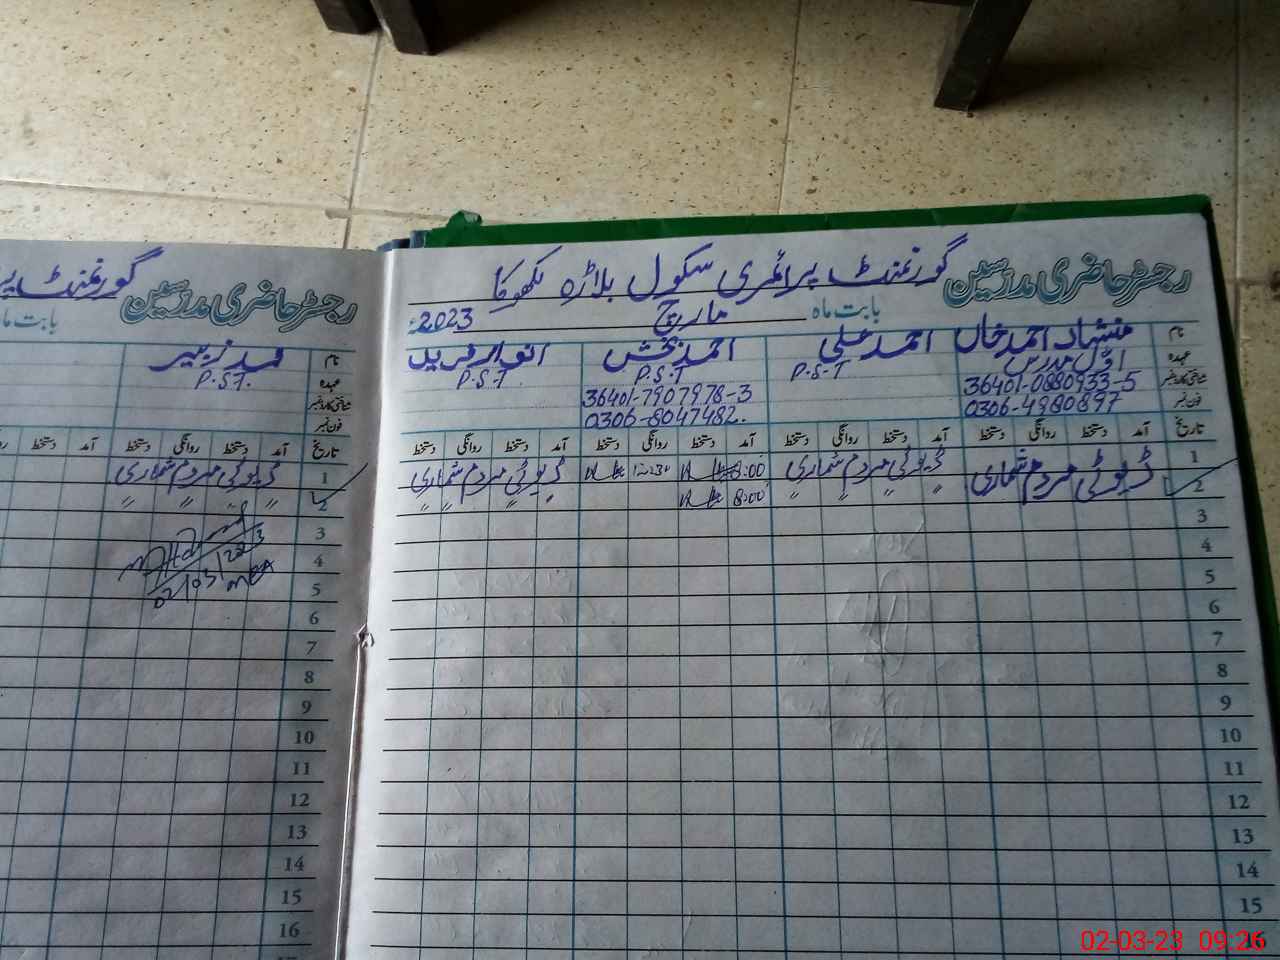 گورنمنٹ پرائمری سکول بلاڑہ لکھوکا
رجسٹر حاضری مدرسین
بابت ماہ مارچ 2023ء
نام منشاد احمد خاں احمد علی احمد بخش انوار فرید
عہدہ اول مدرس P.S.T P.S.T P.S.T
شناختی کارڈ نمبر 36401-0880933-5 36401-7907978-3
فون نمبر 0306-4980897 0306-8047482
تاریخ آمد دستخط روانگی دستخط آمد دستخط روانگی دستخط آمد دستخط روانگی دستخط آمد دستخط روانگی دستخط
1 ڈیوٹی مردم شماری ڈیوٹی مردم شماری 8:00 ڈیوٹی مردم شماری
2 〃 〃 〃 〃 8:00 〃 〃 〃 〃
3
4
5
6
7
8
9
10
11
12
13
14
15
گورنمنٹ
رجسٹر حاضری مدرسین
بابت ماہ
نام محمد زبیر
عہدہ P.S.T.
شناختی کارڈ نمبر
فون نمبر
تاریخ آمد دستخط روانگی دستخط آمد دستخط
1 ڈیوٹی مردم شماری
2 〃 〃 〃 〃
3
4
02/03/2023
5
MEA
6
7
8
9
10
11
12
13
14
15
16
02-03-23 09:26